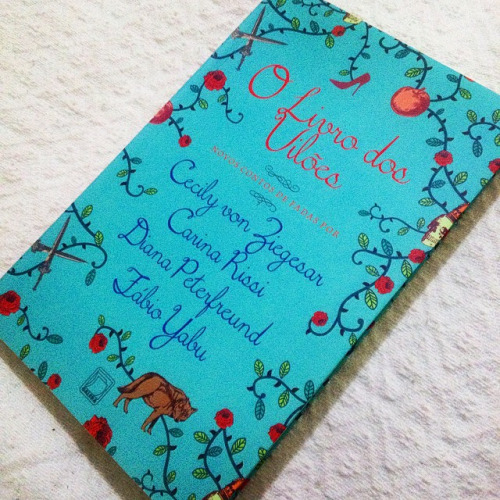 O Livro dos
Vilões
NOVOS CONTOS DE FADAS POR
Cecily von Ziegesar
Carina Rissi
Diana Peterfreund
Fábio Yabu